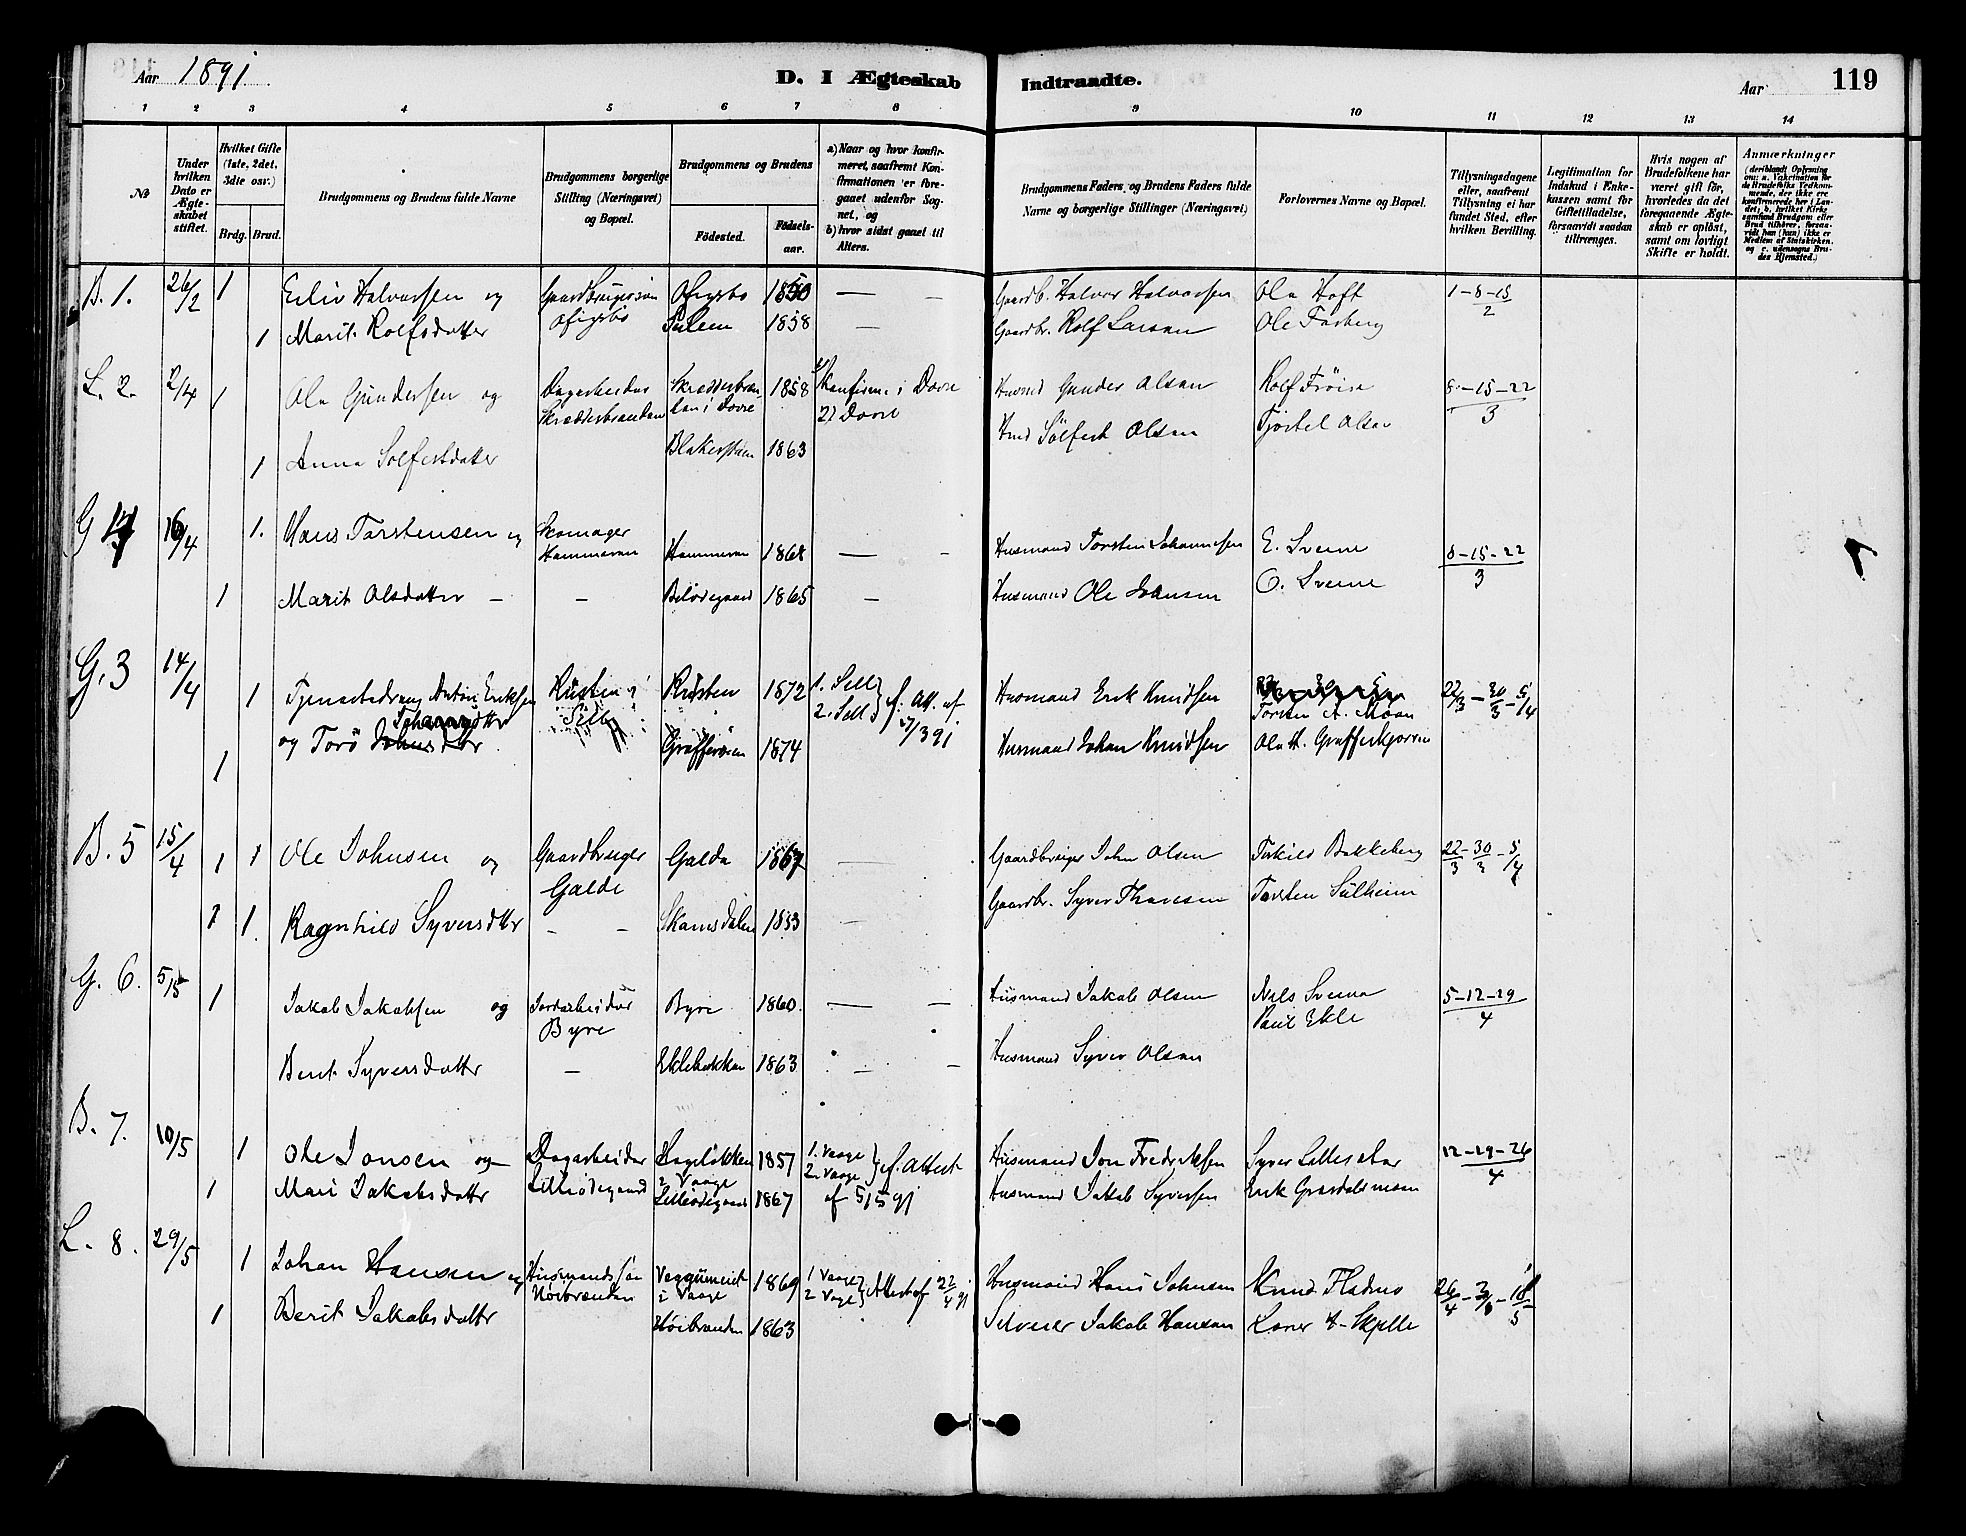 Aar 1891.
D. I Ægteskab Indtraadte.
Aar
119
1 2 3 4 5 6 7 8 9 10 11 12 13 14
№
Under hvilken Dato er Ægteskabet stiftet.
Hvilket Gifte (1ste, 2det, 3die osv.)
Brdg. Brud.
Brudgommens og Brudens fulde Navne
Brudgommens borgerlige Stilling (Næringsvei) og Bopæl.
Brudgommens og Brudens
Fødested.
Fødselsaar.
a) Naar og hvor konfirmeret, saafremt Konfirmationen er foregaaet udenfor Sognet, og
b) hvor sidst gaaet til Alters.
Brudgommens Faders, og Brudens Faders fulde Navne og borgerlige Stillinger (Næringsvei)
Forlovernes Navne og Bopæl.
Tillysningsdagene eller, saafremt Tillysning ei har fundet Sted, efter hvilken Bevilling.
Legitimation for Indskud i Enkekassen samt for Giftetilladelse, forsaavidt saadan tiltrænges.
Hvis nogen af Brudefolkene har været gift før, hvorledes da det foregaaende Ægteskab er opløst, samt om lovligt Skifte er holdt.
Anmærkninger
(deriblandt Oplysning om: a. Vakcination for de Brudefolks Vedkommende, der ikke ere konfirmerede her i Landet; b. hvilket Kirkesamfund Brudgom eller Brud tilhører, forsaavidt han (hun) ikke er Medlem af Statskirken, og c. udensogns Brudes Hjemsted.)
B. 1. 26/2 1 Eiliv Halvorsen og 1850 — — Gaardb. Halvor Halvorsen Ola Hoft 1-8-15/2
1 Marit Rolfsdatter 1858 — Gaardbr. Rolf Larsen Ole Forberg
L. 2. 2/4 1 Ola Gundersen og Dagarbeider 1858 1) Konfirm. i Dovre Husmd Gunder Olsen Rolf Frøise 8-15-22/3
i Dovre 2) Dovre
1 Anna Solfestdatter 1863 Hmd Sølfest Olsen Tjøstel Olsen
G 4 16/4 1. Hans Torstensen og Skomager Hammeren Hammeren 1868 — — Husmand Torsten Johannesen E. Sveine 8-15-22/3
1 Marit Olsdatter — — 1865 — Husmand Ole Johnsen O. Sveine
G. 3 14/4 1 Tjenestedreng Anton Eriksen Rusten i Sell Rusten 1872 1. Sell 2. Sell f. Att. af 17/3 91 Husmand Erik Knudsen Torsten A. Moen 22/3 - 30/3 - 5/4
1 og Torø Johannsdttr 1874 Husmand Johan Knudsen Ola H. Grafferkjørren
B. 5 15/4 1 1 Ole Johnsen og Gaardbruger Galde Galde 1867 — Gaardbruger John Olsen Torkild Bakkeberg 22/3 - 30/3 - 5/4
1 1. Ragnhild Syversdttr — — 1853 — Gaardbr. Syver Thoresen Torsten Sulheim
G. 6. 5/5 1 Jakob Jakobsen og Jordarbeider Byre Byre 1860 — — Husmand Jakob Olsen Nils Sveine 5-12-19/4
Paul Ekle
Berit Syversdatter — Eklebakken 1863 — — Husmand Syver Olsen
B. 7. 10/5 1 Ole Jonsen og Dagarbeider Lilleødegaard Hageløkken i Vaage 1857 1. Vaage 2. Vaage f. Attest af 5/5 91 Husmand Jon Fredriksen 12-19-26/4
1 Mari Jakobsdatter Lilleødegaard 1867 Husmand Jakob Syversen
L. 8. 29/5 1 Johan Hansen og Husmandssøn Høibrenden Veggumeiet i Vaage 1869 1 Vaage 2 Vaage Attest af 22/4 91 Husmand Hans Johnsen Knud Flatmo
1 Berit Jakobsdatter Høibrenden 1863 Selveier Jakob Hansen